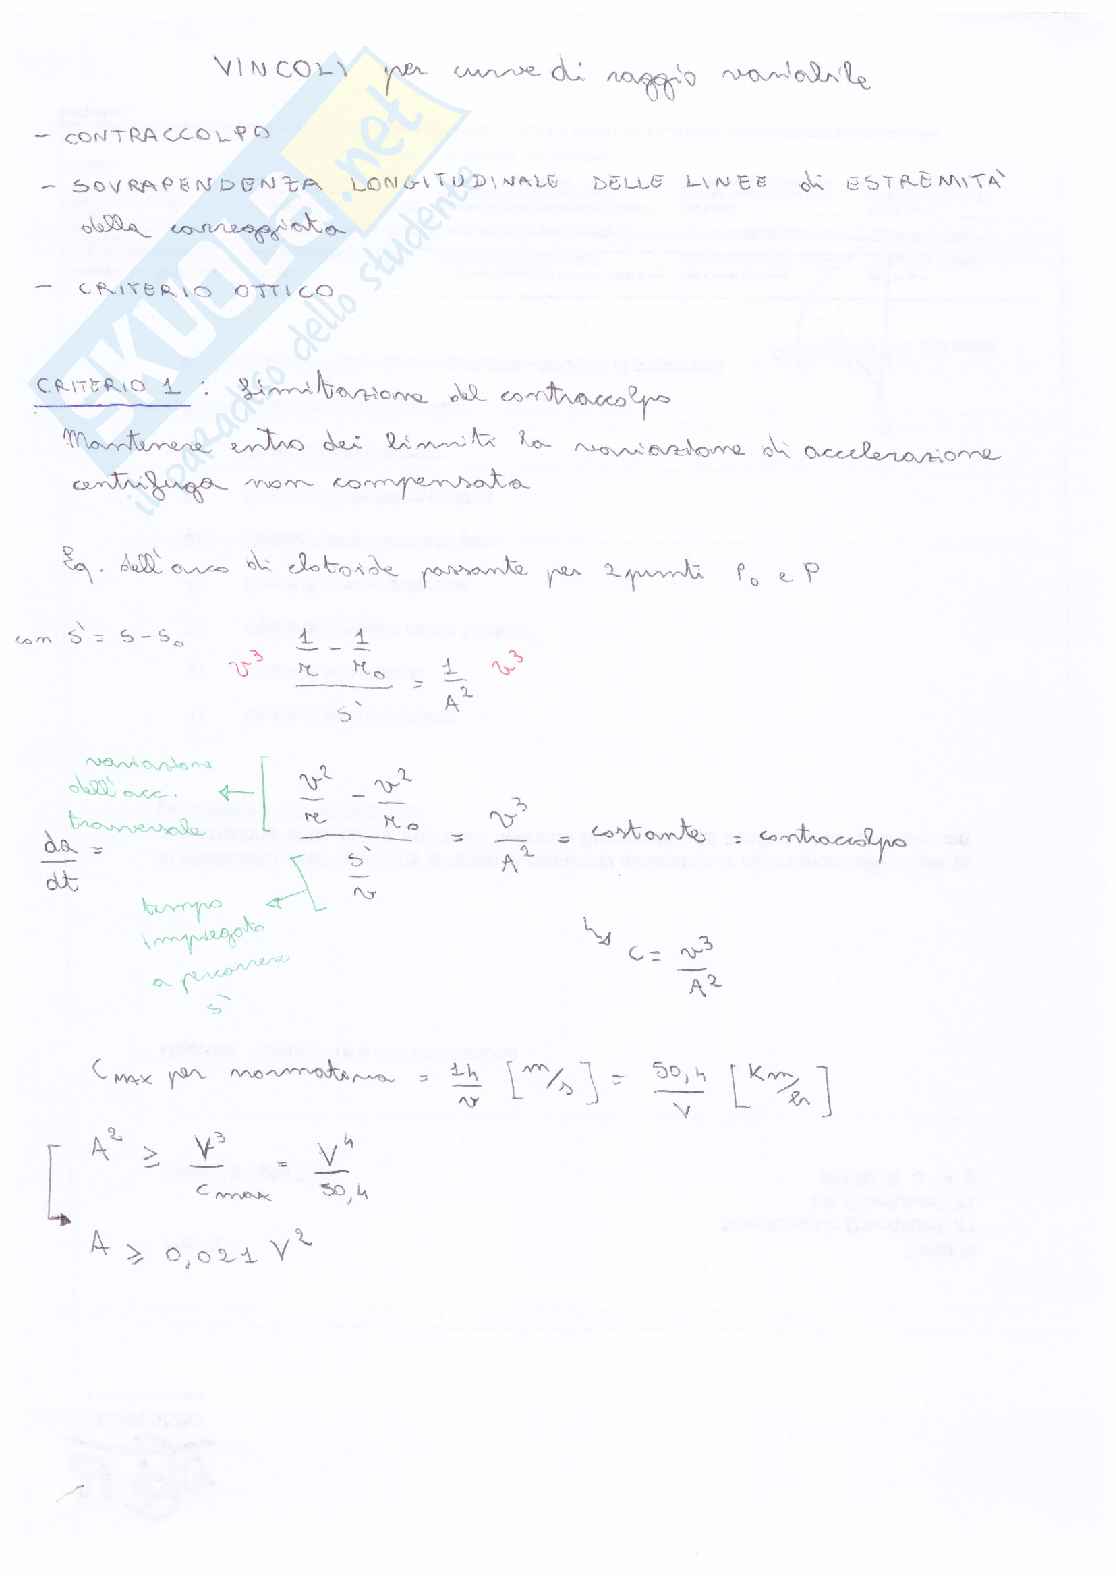 VINCOLI per curve di raggio variabile
- CONTRACCOLPO
- SOVRAPENDENZA LONGITUDINALE DELLE LINEE di ESTREMITÀ
della carreggiata
- CRITERIO OTTICO
SKUOLA.net
il paradiso dello studente
CRITERIO 1 : Limitazione del contraccolpo
Mantenere entro dei limiti la variazione di accelerazione
centrifuga non compensata
Eq. dell'arco di clotoide passante per 2 punti P₀ e P
con s' = s - s₀
v³ (1/r - 1/r₀)/s' = 1/A² v³
variazione
dell'acc.
trasversale
da/dt = (v²/r - v²/r₀)/(s'/v) = v³/A² = costante = contraccolpo
tempo
impiegato
a percorrere
s'
↳ c = v³/A²
C MAX per normativa = 14/v [m/s] = 50,4/V [Km/h]
A² ≥ V³/c max = V⁴/50,4
A ≥ 0,021 V²